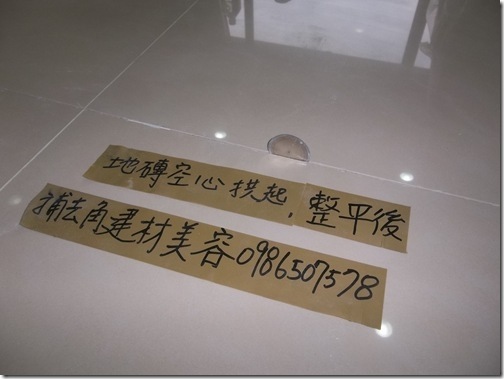 地磚空心拱起,整平後
補去角建材美容0986507578